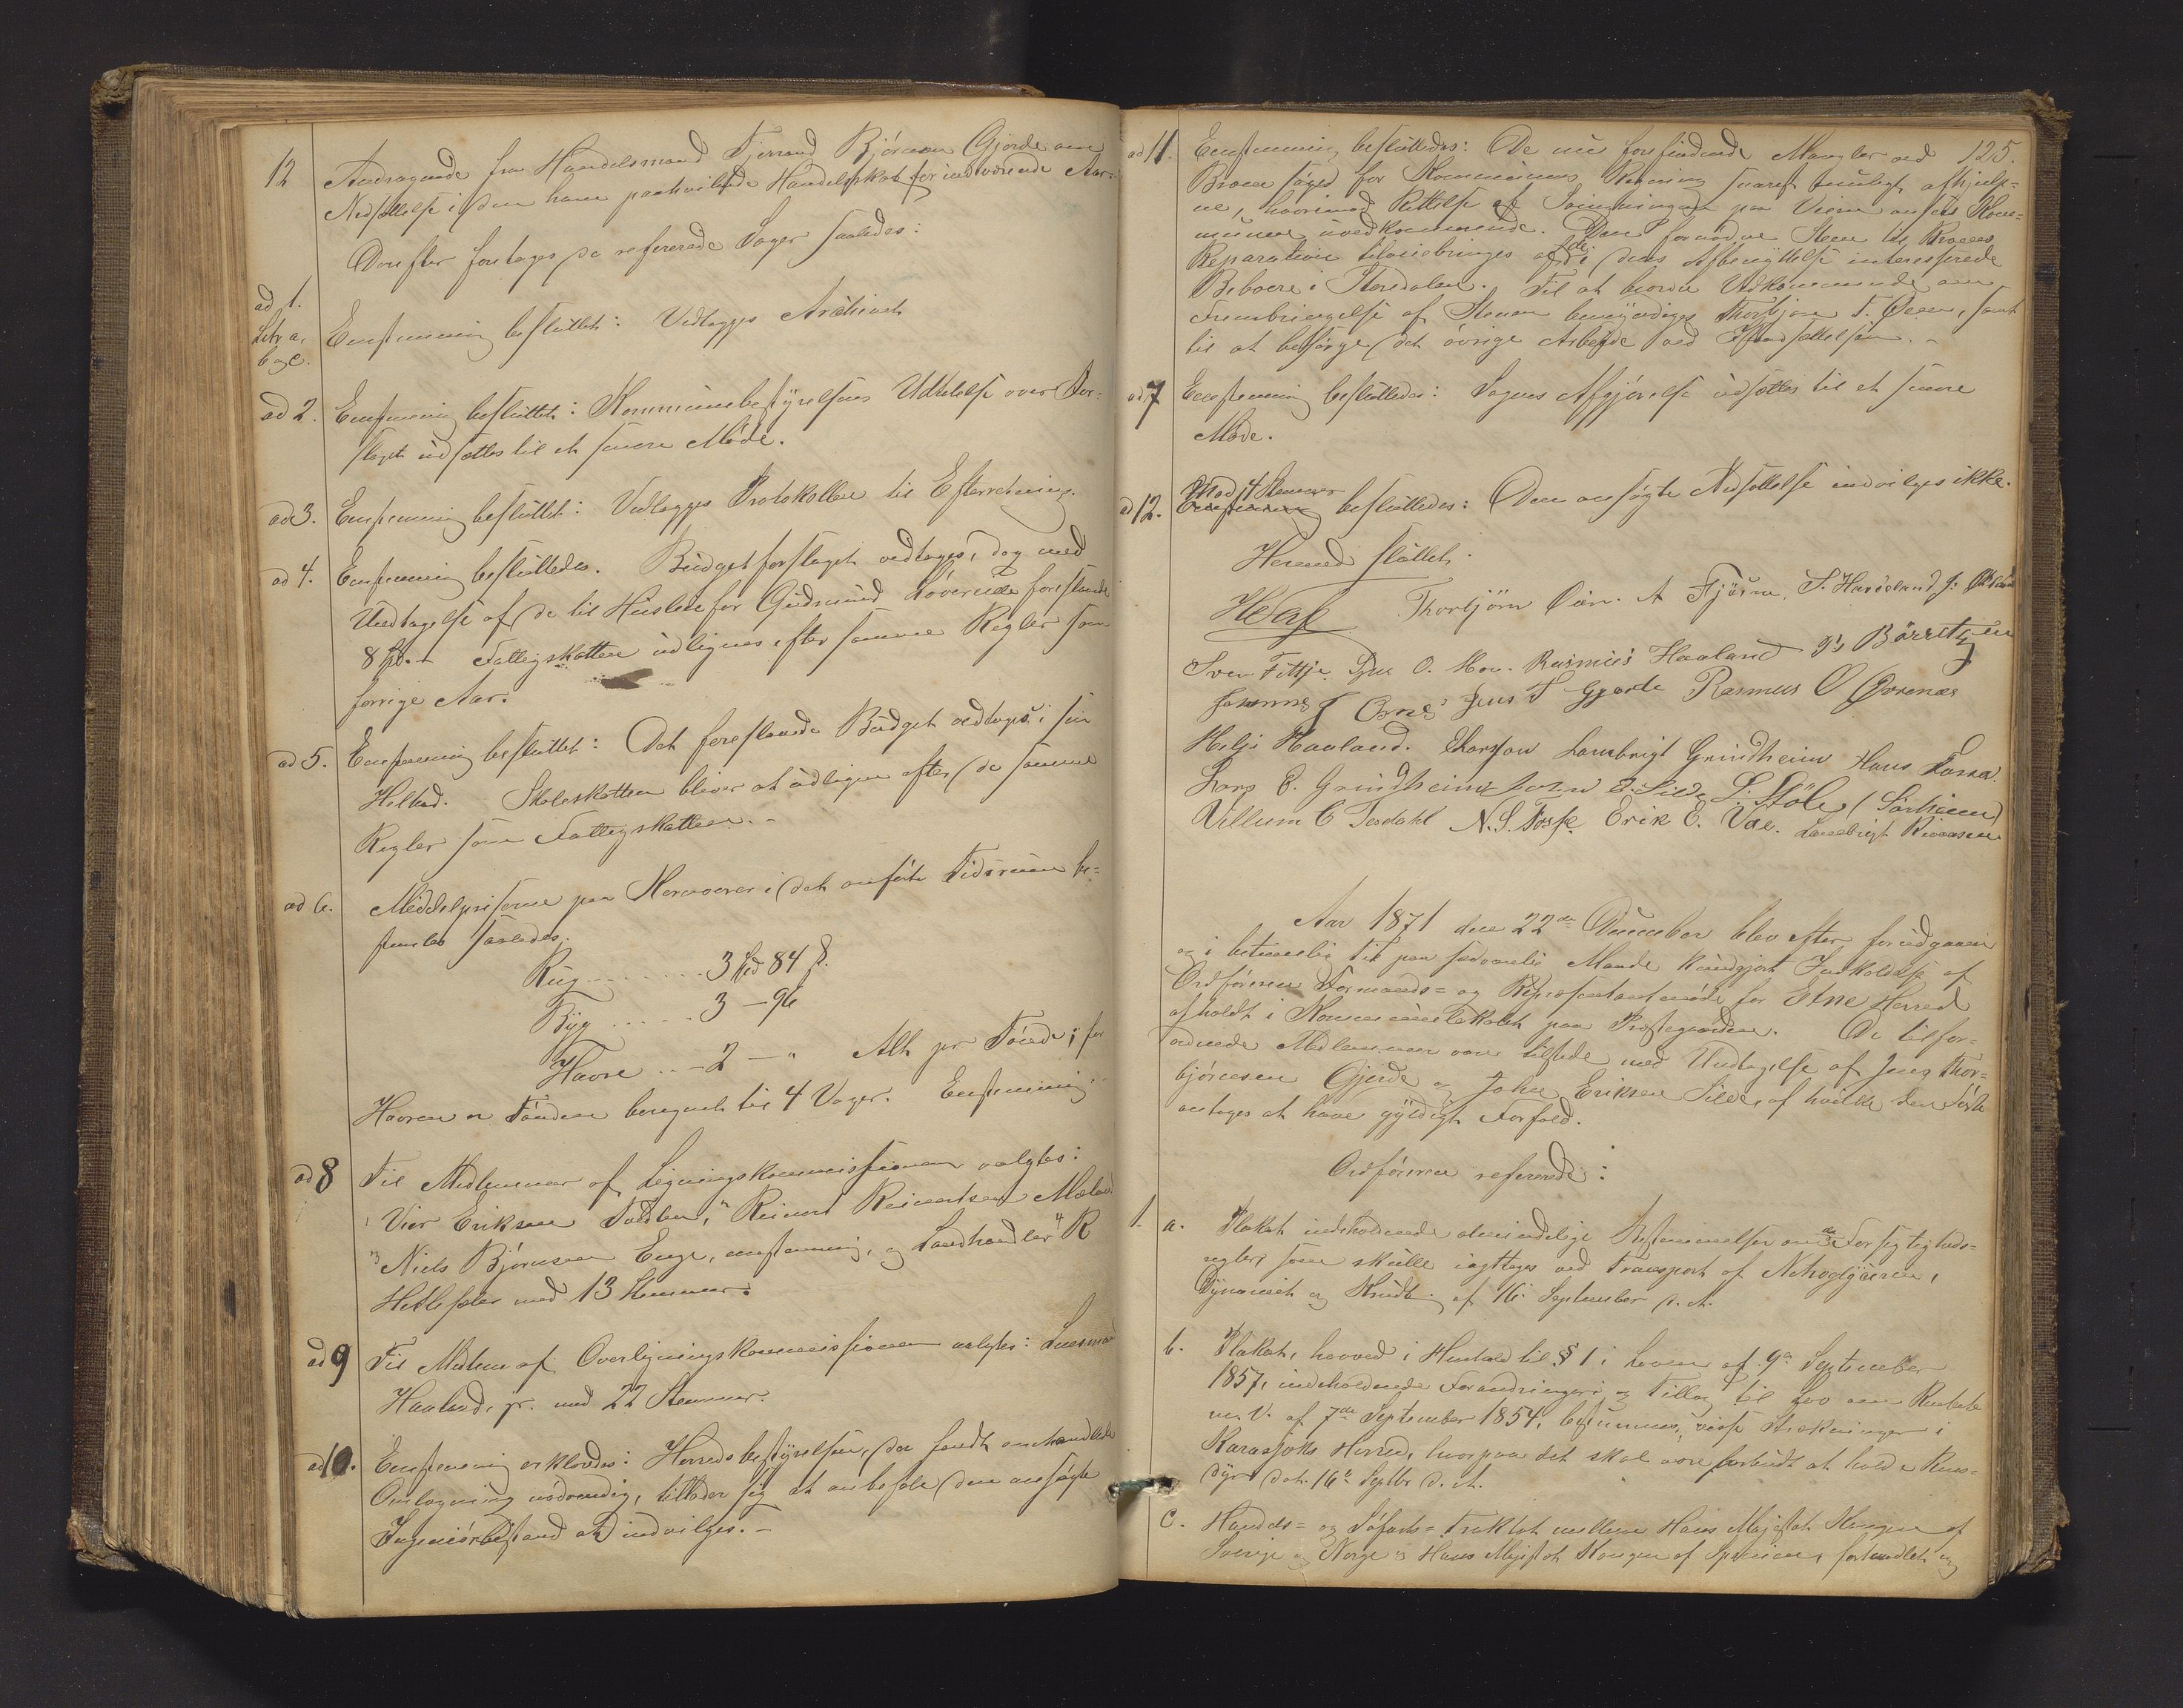 12 Andragende fra Handelsmand Tjerand Bjørnsen Gjerde om
Nedsættelse i den ham paahvilende Handelsskat for indeværende Aar.
Derefter foretages de refererede Sager saaledes:
ad 1.
Litr a,
b og c. Enstemmig besluttet: Vedlægges Archivet
ad 2. Enstemmig besluttet: Kommunebestyrelsens Udtalelse over For-
slaget udsættes til et senere Møde.
ad 3. Enstemmig besluttet: Vedlægges Protokollen til Efterretning.
ad 4. Enstemmig besluttedes. Budgetforslaget vedtages, dog med
Undtagelse af de til Husleie for Gudmund foreslaaede
8 Spd. Fattigskatten udlignes efter samme Regler som
forrige Aar.
ad 5. Enstemmig besluttet: Det foreslaaede Budget vedtages i sin
Helhed. Skoleskatten bliver at udligne efter de samme
Regler som Fattigskatten.-
ad 6. Middelpriserne paa Kornvarer i det anførte Tidsrum be-
stemtes saaledes.
Rug ........ 3 Spd 84 s.
Byg ..... 3 - 96
Havre ... 2 - " Alt pr Tønde; for
Havren er Tønden beregnet til 4 Voger. Enstemmig.-
ad 8 Til Medlemmer af Ligningskommissionen valgtes:
1 Vier Eriksen 2 Reinert Reinertsen
3 Niels Bjørnsen Enge, enstemmig, og Landhandler 4 R
med 13 Stemmer.
ad 9 Til Medlem af Overligningskommissionen valgtes: Lensmand
Haaland, jr. med 22 Stemmer.
ad 10. Enstemmig erklæredes: Herredsbestyrelsen, der fandt omhandlede
Omlægning nødvendig, tillader sig at anbefale den ansøgte
Ingeniørbistand at indvilges.-
125.
ad 11. Enstemmig besluttedes: De nu forefindende Mangler ved
Broen søges for Kommunens Regning snarest muligt afhjulp-
ne, hvorimod Rettelse af Svingningen paa Veien ansees Kom-
munen uvedkommende. Den fornødne Steen til Broens
Reparation tilveiebringes af de i dens Afbenyttelse interesserede
Beboere i Stordalen. Til at beordre Vedkommende om
Frembringelse af Stenen bemyndiges Thorbjørn T. Øien, samt
til at besørge det øvrige Arbeide ved Istandsættelsen.-
ad 7 Enstemmig besluttedes: Sagens Afgjørelse udsættes til et senere
Møde.
ad 12. Mod 4 Stemmer
Enstemmig besluttedes: Den ansøgte Nedsættelse indvilges ikke.
Hermed sluttet.
Thorbjörn Öien. A Fjösne.
Sven Fittje. O. Moe. Rasmus Haaland
Johannes J Osnes Jens T Gjerde Rasmus O
Helje Haaland. Lambrigt Grindheim Hans
Lars E. Grindheim John E. Silde L. Stöle
Villum C Tesdahl N. S. Tosse. Erik E. Vae. Lambrigt
Aar 1871 den 22de December blev efter forudgaaen
og i betimelig Tid paa sædvanlig Maade kundgjort Indkaldelse af
Ordføreren Formands- og Repræsentantmøde for Etne Herred
afholdt i Kommunelokalet paa Præstegaarden. De tilfor-
ordnede Medlemmer vare tilstede med Undtagelse af Jens Thor-
bjørnsen Gjerde og John Eriksen Silde, af hvilke den første
antages at have gyldigt Forfald.
Ordføreren refererede:
1. a. Plakat indeholdende almindelige Bestemmelser om de Forsigtigheds-
regler, som skulle iagttages ved Transport af Nitroglycerin,
Dynamit og Krudt. af 16. September d. A.
b. Plakat, hvorved i Henhold til § 1 i Loven af 9de September
1857, indeholdende Forandringer i og Tillæg til Lov om Rendrift
m. V. af 7de September 1854, bestemmes visse Strækninger i
Karasjoks Herred, hvorpaa det skal være forbudt at holde Rens-
dyr dat. 16de Septbr d. A.
c. Handels- og Søfarts-Traktat mellem Hans Majestæt Kongen af
Sverige og Norge og Hans Majestæt Kongen af Spanien, forhandlet og